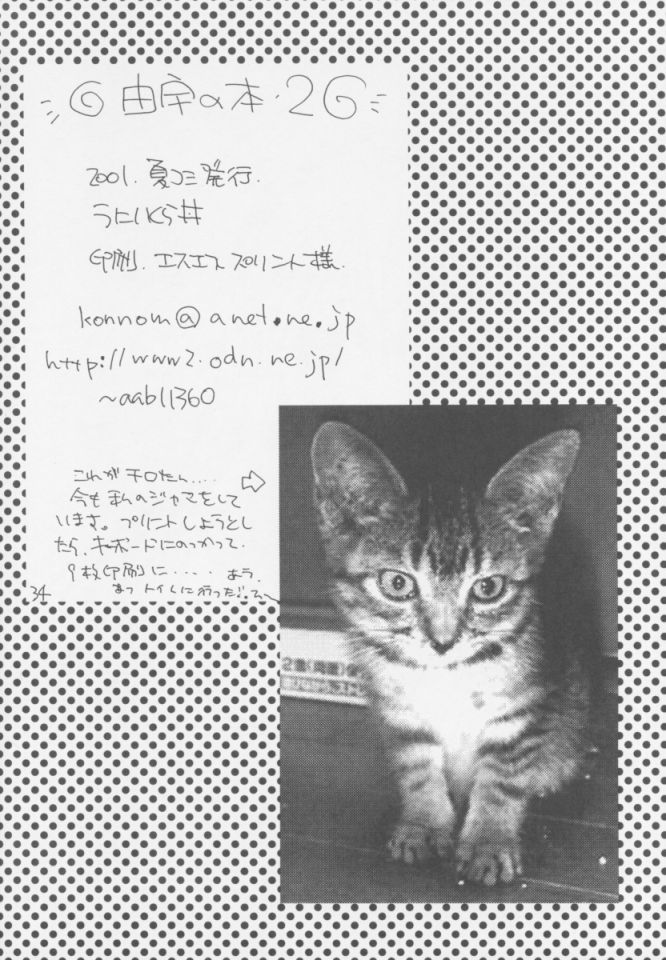 ◎由宇の本・2◎
2001. 夏コミ発行.
うたたねくらげ
印刷. エスエスプリント様.
konnom@anet.ne.jp
http://www2.odn.ne.jp/
~aab11360
これがチロたん....
今もまんのジャマをして
います。プリントしようとし
たら、キーボードにのっかって.
9枚印刷に.... あう.
あっ トイレに行った
34